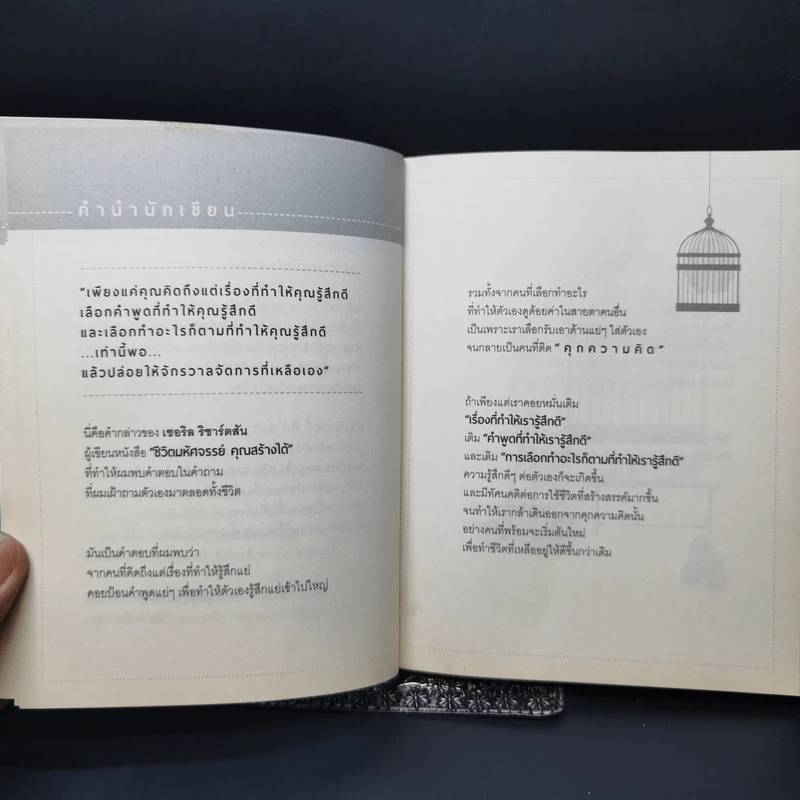 คำนำนักเขียน
“เพียงแค่คุณคิดถึงแต่เรื่องที่ทำให้คุณรู้สึกดี
เลือกคำพูดที่ทำให้คุณรู้สึกดี
และเลือกทำอะไรก็ตามที่ทำให้คุณรู้สึกดี
...เท่านี้พอ...
แล้วปล่อยให้จักรวาลจัดการที่เหลือเอง”
นี่คือคำกล่าวของ เชอริล ริชาร์ตสัน
ผู้เขียนหนังสือ “ชีวิตมหัศจรรย์ คุณสร้างได้”
ที่ทำให้ผมพบคำตอบในคำถาม
ที่ผมเฝ้าถามตัวเองมาตลอดทั้งชีวิต
มันเป็นคำตอบที่ผมพบว่า
จากคนที่คิดถึงแต่เรื่องที่ทำให้รู้สึกแย่
คอยป้อนคำพูดแย่ๆ เพื่อทำให้ตัวเองรู้สึกแย่เข้าไปใหญ่
รวมทั้งจากคนที่เลือกทำอะไร
ที่ทำให้ตัวเองดูด้อยค่าในสายตาคนอื่น
เป็นเพราะเราเลือกรับเอาด้านแย่ๆ ใส่ตัวเอง
จนกลายเป็นคนที่ติด “คุกความคิด”
ถ้าเพียงแต่เราคอยหมั่นเติม
“เรื่องที่ทำให้เรารู้สึกดี”
เติม “คำพูดที่ทำให้เรารู้สึกดี”
และเติม “การเลือกทำอะไรก็ตามที่ทำให้เรารู้สึกดี”
ความรู้สึกดีๆ ต่อตัวเองก็จะเกิดขึ้น
และมีทัศนคติต่อการใช้ชีวิตที่สร้างสรรค์มากขึ้น
จนทำให้เรากล้าเดินออกจากคุกความคิดนั้น
อย่างคนที่พร้อมจะเริ่มต้นใหม่
เพื่อทำชีวิตที่เหลืออยู่ให้ดีขึ้นกว่าเดิม